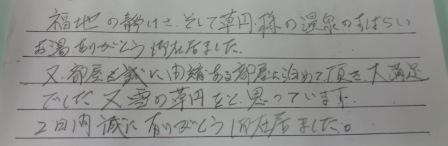 福地の静けさ、そして草円様の温泉のすばらしい
お湯ありがとう御在居ました。
又部屋も誠に由緒ある部屋に泊めて頂き大満足
でした 又雪の草円をと思っています。
2日間誠に有りがとう御在居ました。